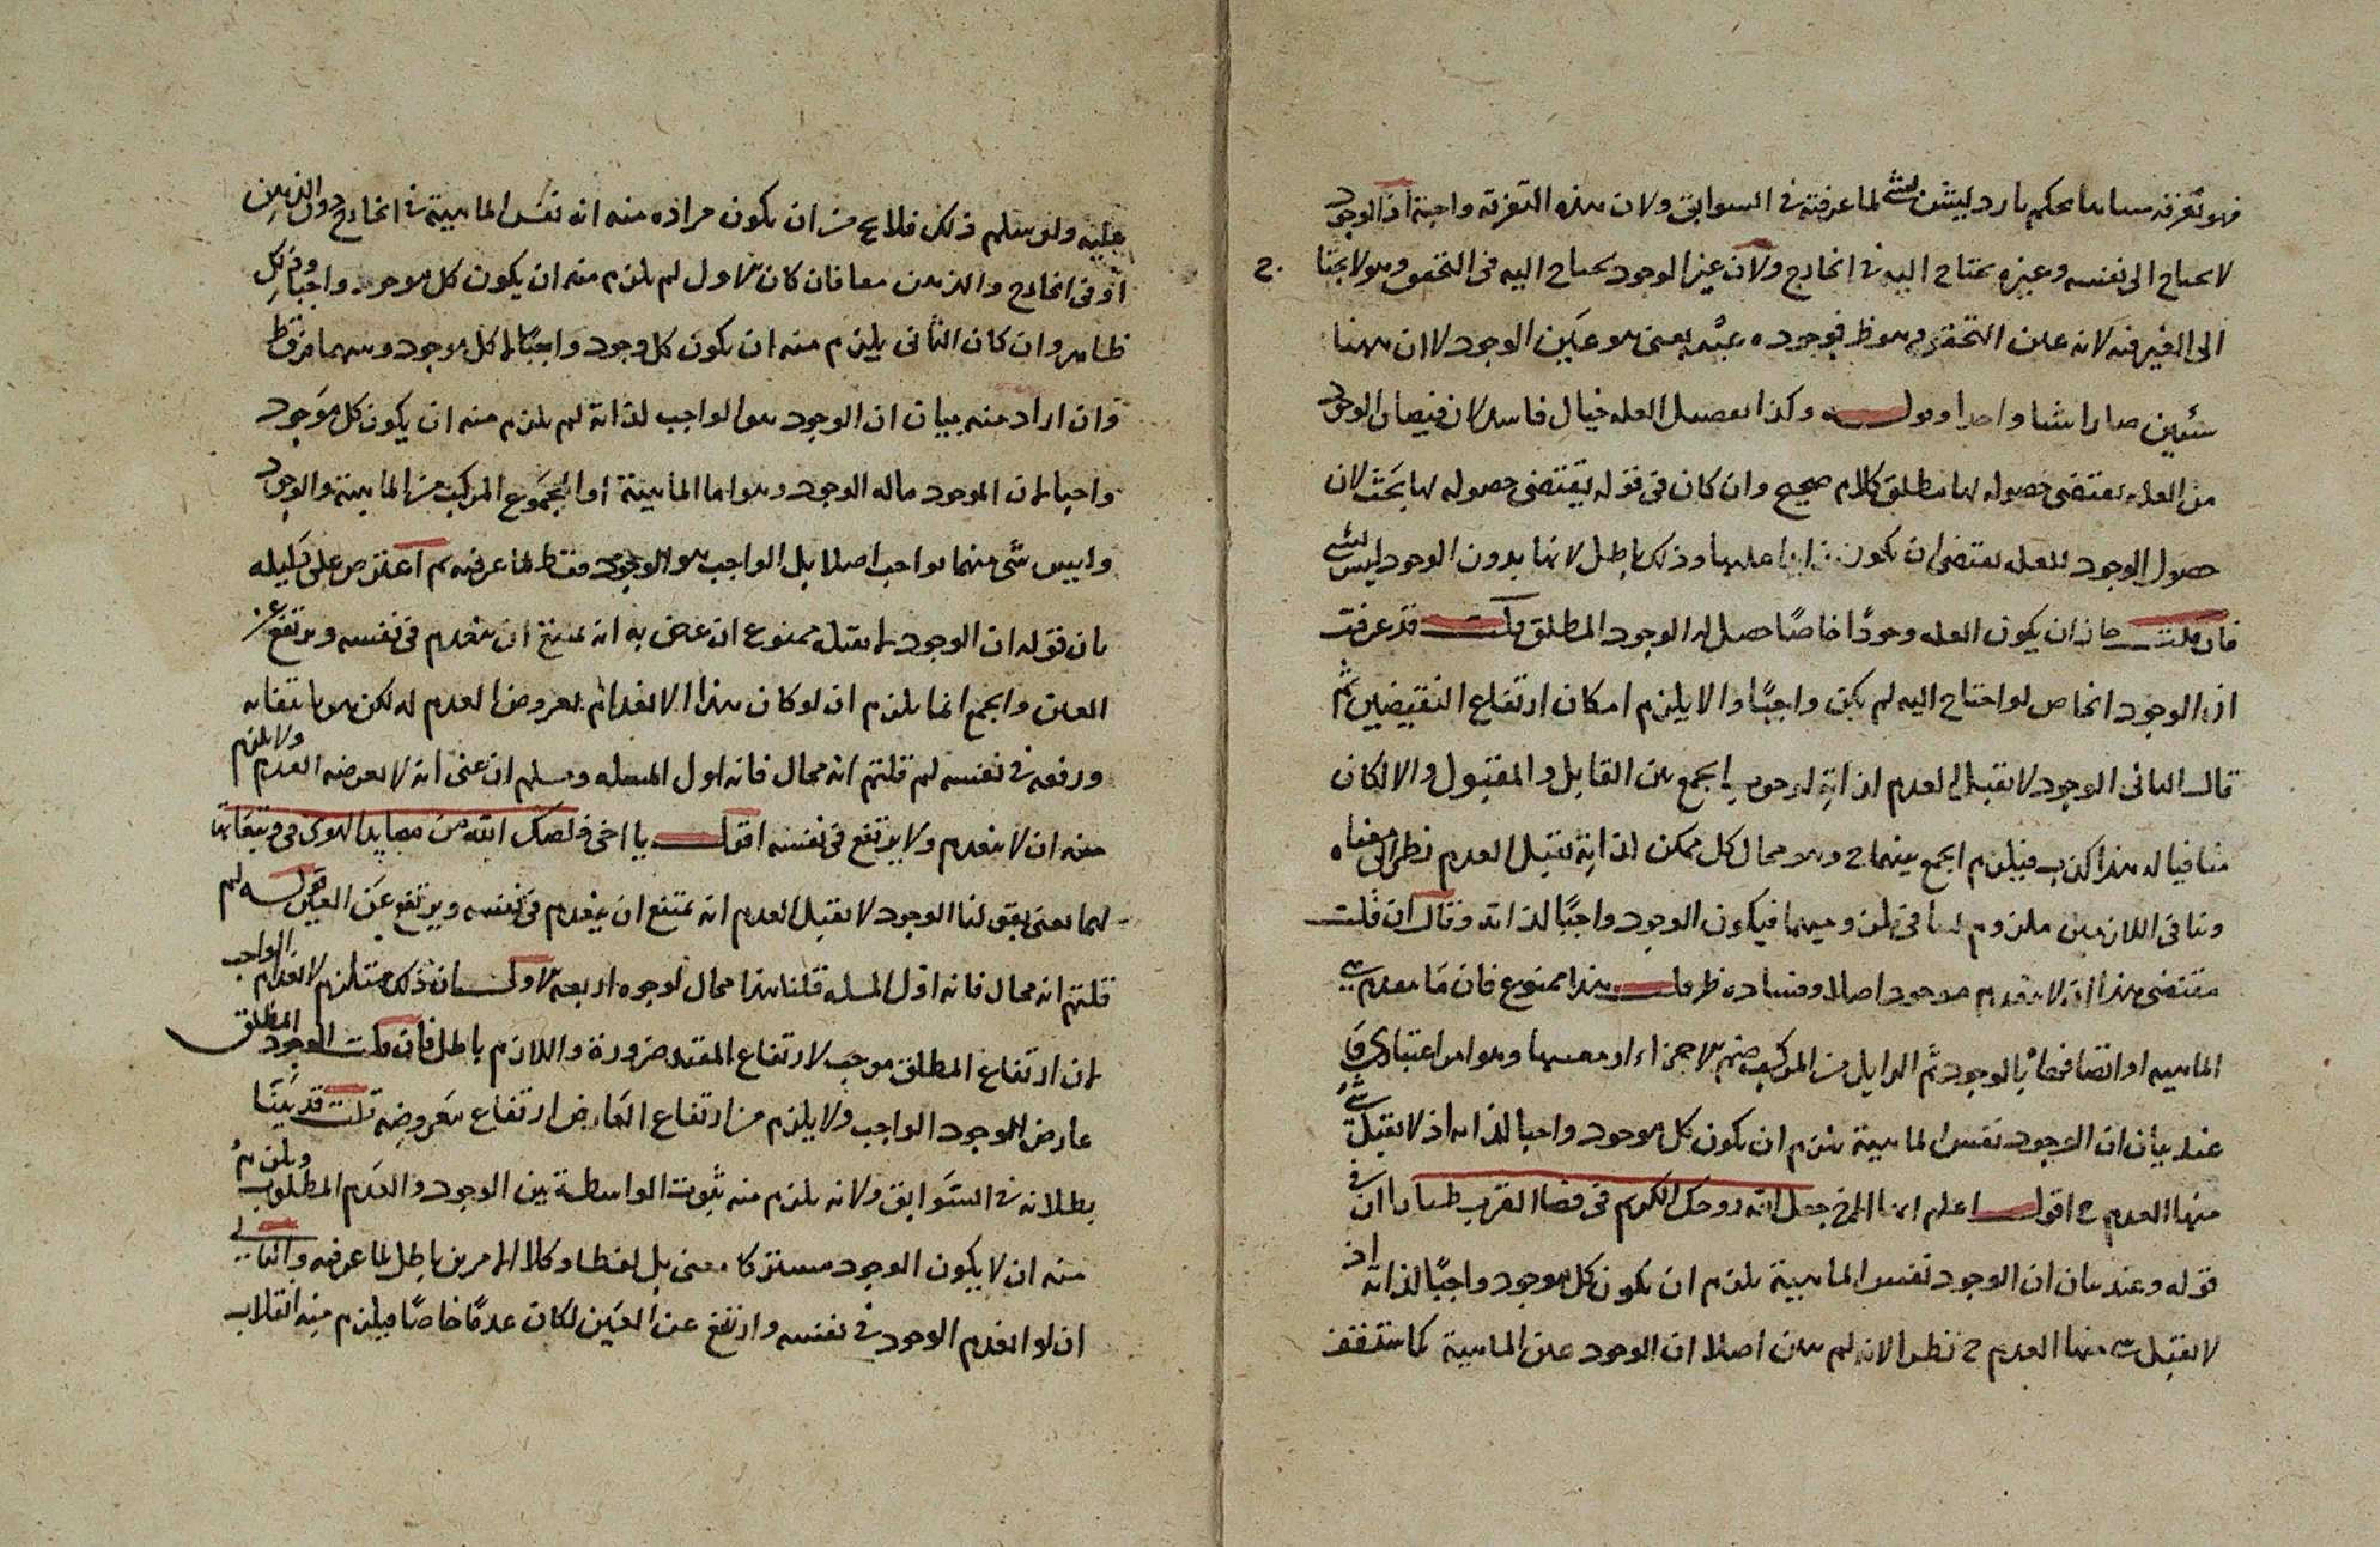 فهو تفرقه بارد ليس بشئ لما عرفته فى السوابق ولان هذه التفرقة واجبة اذ الوجود
لا يحتاج الى نفسه وغيره يحتاج اليه فى الخارج ولان غير الوجود يحتاج اليه فى التحقق وهو لا يحتاج
الى الغير فيه لانه عين التحقق وهو ظ فوجوده عينه بمعنى هو عين الوجود لا ان ههنا
شيئين صارا شيا واحدا وقوله وكذا العله خيال فاسد لان فيضان الوجود
من العله يقتضى حصوله لها مطلق كلام صحيح وان كان فى قوله يقتضى حصوله لها بحث لان
حصول الوجود للعله يقتضى ان يكون عليها وذلك باطل لانها بدون الوجود ليس بشئ
فان قلت جاز ان يكون العله وجودًا خاصًا حصل له الوجود المطلق قلت قد عرفت
ان الوجود الخاص لو احتاج اليه لم يكن واجبًا والا يلزم امكان ارتفاع النقيضين ثم
قال الثانى الوجود لا يقبل العدم لذاته لوجوب الجمع بين القابل والمقبول والا لكان
منافيا له هذا كذب فيلزم الجمع بينهما ح وهو محال كل ممكن لذاته يقبل العدم نظرا الى معناه
وتنافى اللازمين ملزوم لمنافى ملزوميهما فيكون الوجود واجبًا لذاته وقال ان قلت
مقتضى هذا ان لا ينعدم موجود اصلا وفساده ظ قلت هذا ممنوع فان ما ينعدم هى
الماهيه او اتصافها بالوجود ثم الزايل من المركب الاجزاء وهو امر اعتبارى
عند بيان ان الوجود نفس الماهية يلزم ان يكون كل موجود واجبا لذاته اذ لا يقبل شئ
منها العدم ح اقول اعلم ايها الاخ جعل الله روحك الكريم فى فضا القرب طيارا ان فى
قوله وعند بيان ان الوجود نفس الماهية يلزم ان يكون كل موجود واجبًا لذاته اذ
لا يقبل شئ منها العدم ح نظرا لانه لم يبين اصلا ان الوجود عين الماهية كما ستقف
عليه ولو سلم ذلك فلا يخ من ان يكون مراده منه انه نفس الماهية فى الخارج دون الذهن
او فى الخارج والذهن معا فان كان الاول لم يلزم منه ان يكون كل موجود واجبًا وذلك
ظاهر وان كان الثانى يلزم منه ان يكون كل وجود واجبًا لا كل موجود وبينهما فرق ظ
وان اراد منه بيان ان الوجود هو الواجب لذاته لم يلزم منه ان يكون كل موجود
واجبا لان الموجود ماله الوجود وهو اما الماهية او المجموع المركب من الماهية والوجود
وليس شئ منهما بواجب اصلا بل الواجب هو الوجود فقط لما عرفته ثم اعترض على دليله
بان قوله ان الوجود لا يقبل ممنوع ان عنى به انه يمتنع ان ينعدم فى نفسه ويرتفع عن
العين والجمع انما يلزم ان لو كان هذا الانعدام لعروض العدم له لكن هو بانتفائه
ورفعه فى نفسه لم قلتم انه محال فانه اول المسئله ومسلم ان عنى انه لا يعرضه العدم ولا يلزم
منه ان لا ينعدم ولا يرتفع فى نفسه اقول يا اخى خلصك الله من مصايد الهوى
انما نعنى بقولنا الوجود لا يقبل العدم انه يمتنع ان ينعدم فى نفسه ويرتفع عن العين قوله لم
قلتم انه محال فانه اول المسله قلنا هذا محال لوجوه اربعه الاول ان ذلك مستلزم لانعدام الواجب
لان ارتفاع المطلق موجب لارتفاع المقيد ضرورة واللازم باطل فان قلت الوجود المطلق
عارض للوجود الواجب ولا يلزم من ارتفاع العارض ارتفاع معروضه قلت قد بينا
بطلانه فى السوابق ولانه يلزم منه ثبوت الواسطة بين الوجود والعدم المطلوب ويلزم
منه ان لا يكون الوجود مشتركا معنى بل لفظا وكلا الامرين باطل لما عرفته والثانى
ان لو انعدم الوجود فى نفسه وارتفع عن العين لكان عدمًا خاصًا فيلزم منه انقلاب